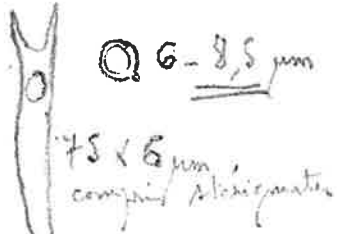 6 - 8,5 µm
75 x 6 µm
compris stérigmates